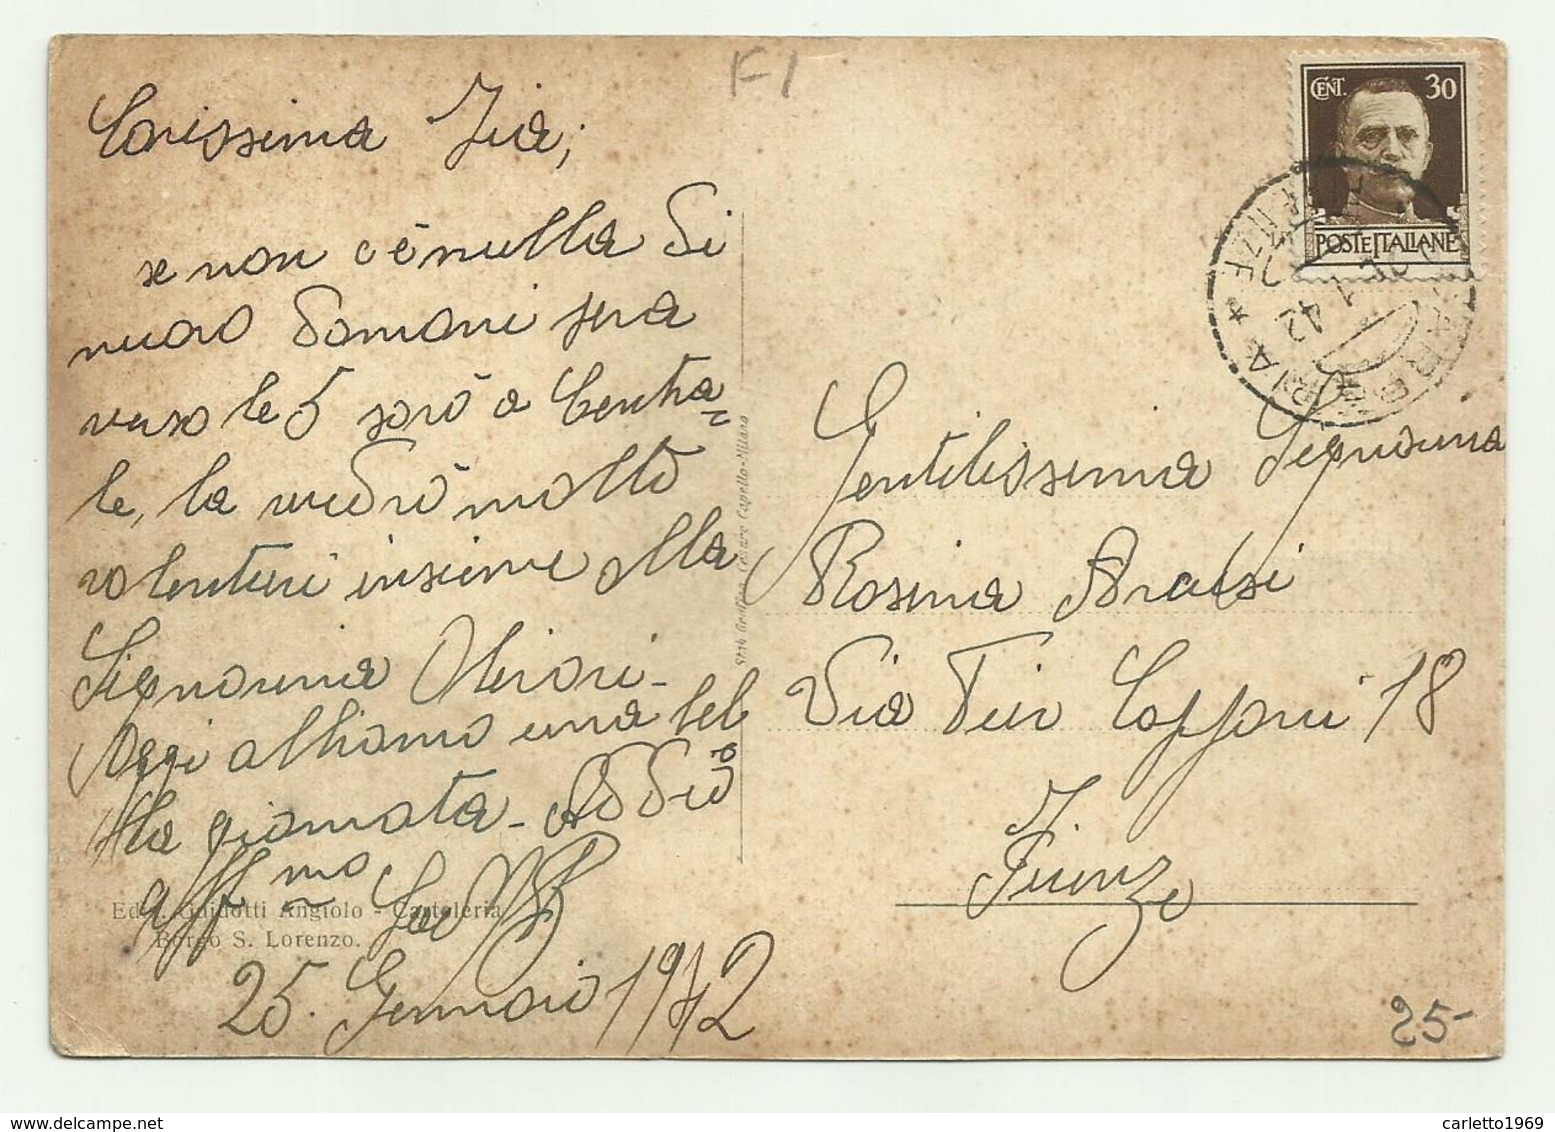 F1
Carissima Zia;
se non c'è nulla di
nuovo domani sera
verso le 5 sarò a Centra=
le, la vedrò molto
volentieri insieme alla
Signorina
Oggi abbiamo una bel
lla giornata - Addio
aff.mo
25. Gennaio 1942
Ediz. Guidotti Angiolo - Cartoleria
Borgo S. Lorenzo.
Stab. Grafico Cesare Capello-Milano
CENT. 30
POSTE ITALIANE
SCARPERIA * FIRENZE
1 42
Gentilissima Signorina
Rosina
Via Pier Capponi 18
Firenze
25-
carletto1969